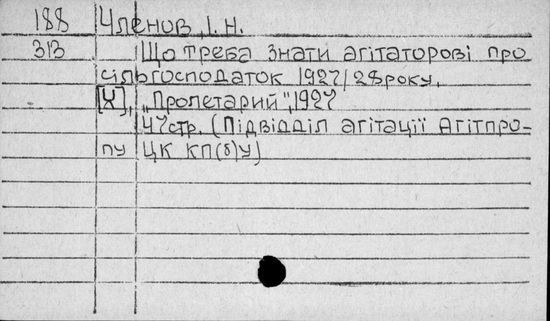 188 Членов, І. Н.
313 Що треба знати агітаторові про
сільгосподаток 1927/28 року.
[Х], „Пролетарий", 1927
47 стр. (Підвідділ агітації Агітпро-
пу ЦК КП(б)У)